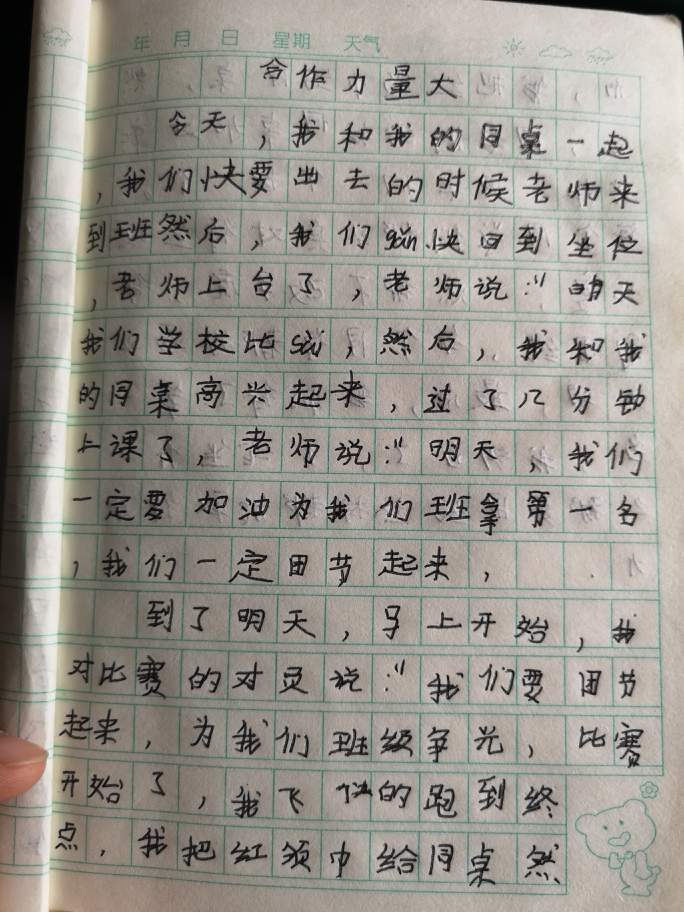 年 月 日 星期 天气
合作力量大
今天，我和我的同桌一起
，我们快要出去的时候老师来
到班然后，我们gǎn快回到坐位
，老师上台了，老师说：“明天
我们学校比sài，然后，我和我
的同桌高兴起来，过了几分钟
上课了，老师说：“明天，我们
一定要加油为我们班拿第一名
，我们一定团节起来，
到了明天，马上开始，我
对比赛的对员说：“我们要团节
起来，为我们班级争光，比赛
开始了，我飞快的跑到终
点，我把红领巾给同桌然